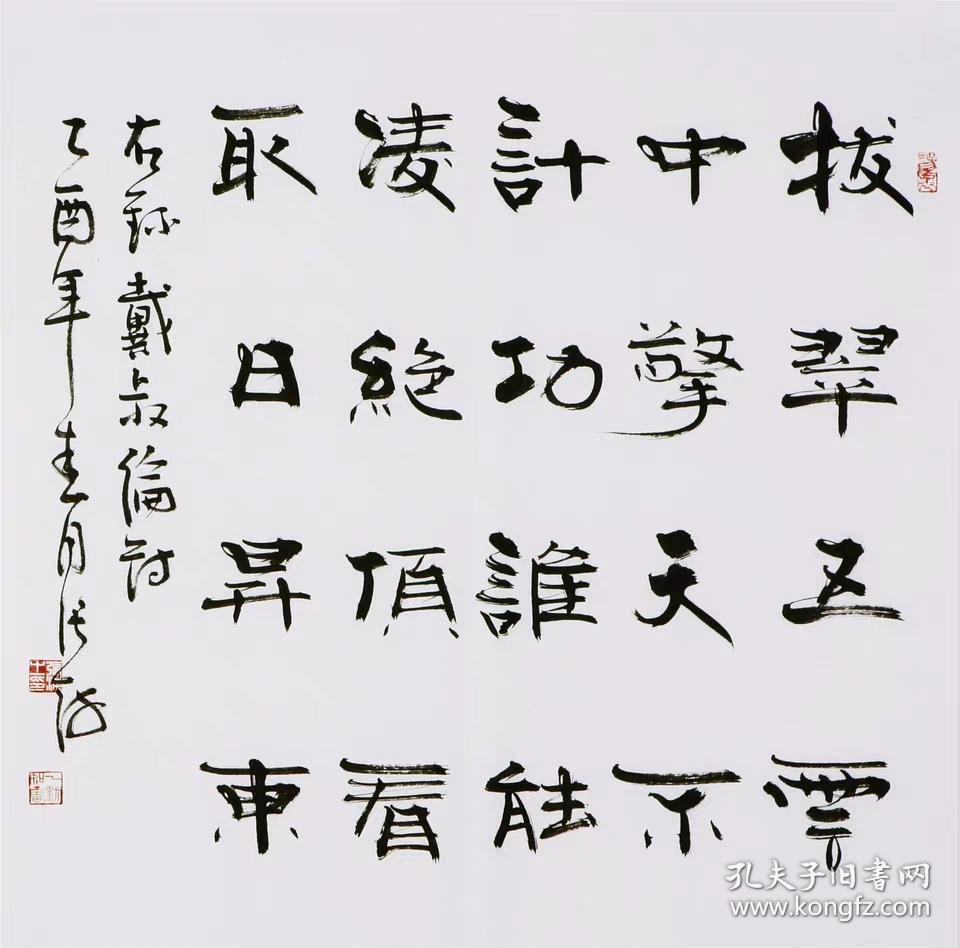 拔翠五雲
中擎天不
計功誰能
凌絕頂看
取日昇東
右錄戴叔倫詩
乙酉年春月張海
孔夫子旧书网
www.kongfz.com